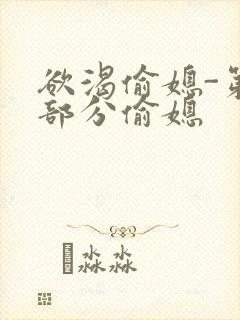 欲渴偷媳-第
部分偷媳
淼淼